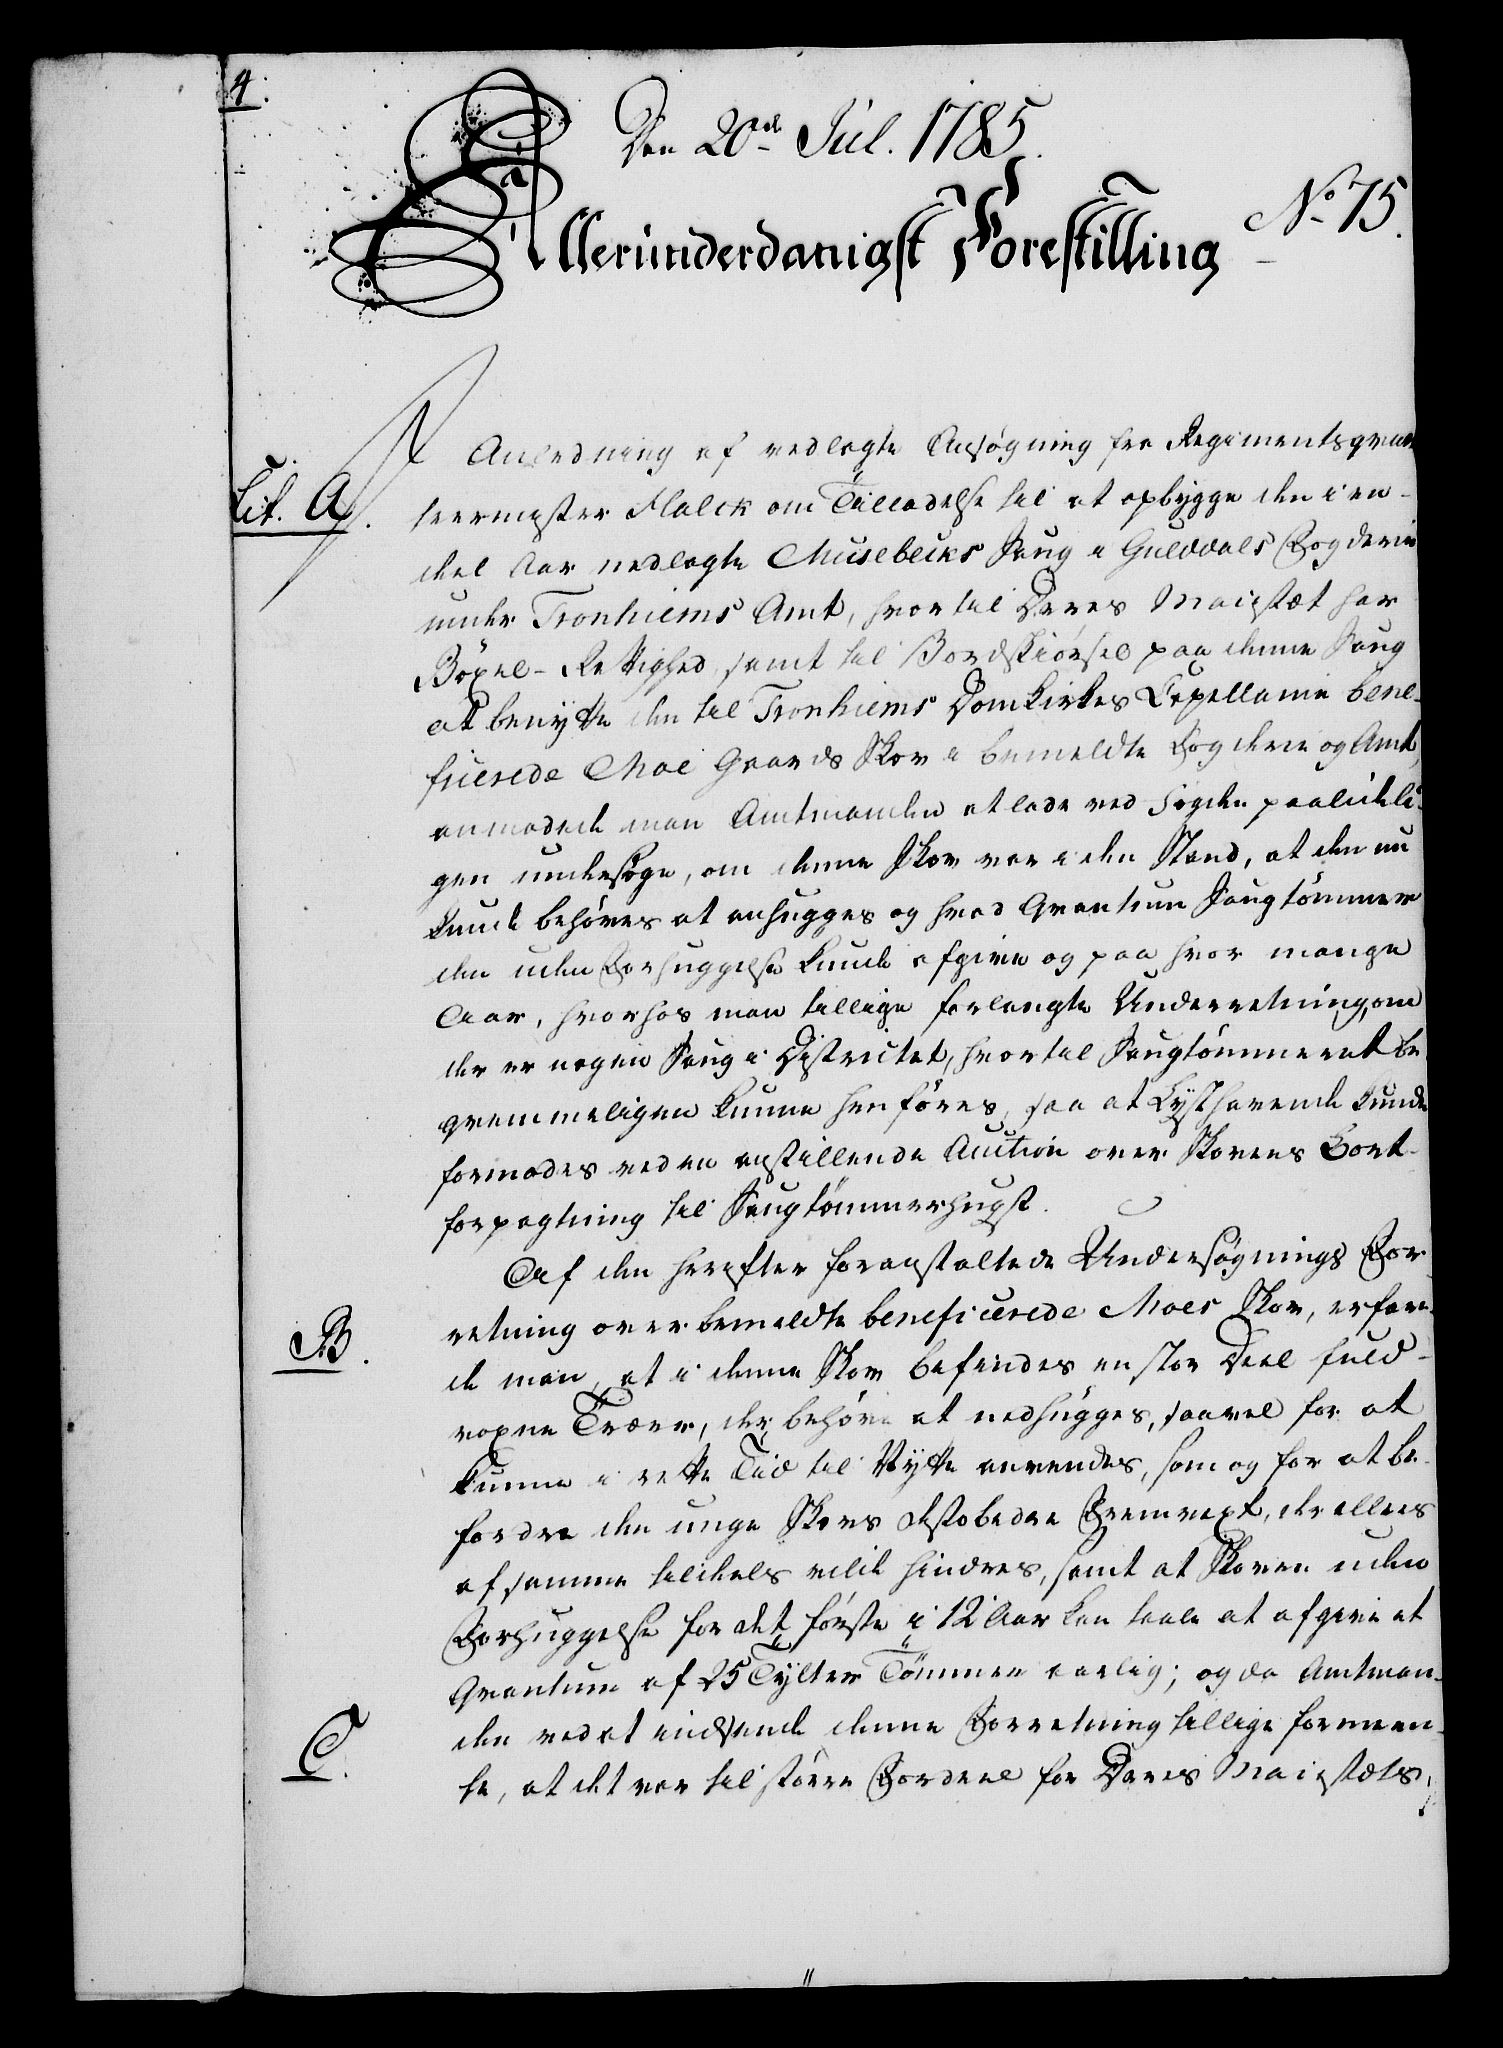 4.
Den 20de Jul. 1785.
No 75.
Allerunderdanigst Forestilling
I Anledning af vedlagte Ansøgning fra Regimentsqvar
Lit. A.
teermester Falck om Tilladelse til at opbygge den i en-
deel Aar nedlagte Musebecks Saug i Guldals Fogderie
under Tronhiems Amt, hvortil Deres Maiestæt har
Böxel-Rettighed, samt til Bordskiörsel paa denne Saug
at benytte den til Tronhiems Domkirkes Capellanie bene-
ficerede Moe Gaards Skov i bemeldte Fogderie og Amt,
anmodede man Amtmanden at lade ved Fogden paalideli-
gen undersøge, om denne Skov var i den Stand, at den nu
kunde behöves at anhugges og hvad Qvantum Saugtömmer
den uden Forhuggelse kunde afgive og paa hvor mange
Aar, hvorhos man tillige forlangte Underretning, om
der er nogen Saug i Districtet, hvortil Saugtömmeret be-
qvemmeligen kunne henföres, saa at Lysthavende kunde
formodes ved en anstillende Auction over Skovens Bort-
forpagtning til Saugtömmerhugst.
Af den herefter foranstaltede Undersøgnings For-
B.
retning over bemeldte beneficerede Moes Skov, erfare-
de man, at i denne Skov befindes en stor Deel fuld-
voxne Træer, der behöve at nedhugges, saavel for at
kunne i rette Tid til Nytte anvendes, som og for at be-
fordre den unge Skovs desto bedre Fremvext, der ellers
af samme tildeels vilde hindres, samt at Skoven uden
Forhuggelse for det förste i 12 Aar kan taale at afgive et
Qvantum af 25 Tylter Tömmer aarlig; og da Amtman-
C.
den ved at indsende denne Forretning tillige formeen-
te, at det var til större Fordeel for Deres Maiestæts,